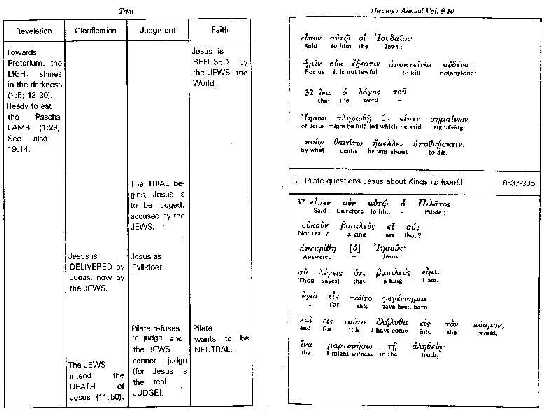 Revelation
Clarification
Judgment
Faith
Towards
Pretorium, the
LIGHT shines
in the darkness
Ready to eat
the Pascha
LAMB (1:29,
See also
19:14.
Jesus is
REFUSED by
the JEWS, the
World.
The TRIAL be-
gins, Jesus is
to be judged,
accused by the
JEWS.
Jesus is
DELIVERED by
Judas, now by
the JEWS.
Jesus as
Evildoer
Pilate refuses
to judge and
the JEWS
cannot judge
(for Jesus is
the real
JUDGE).
Pilate
wants to be
NEUTRAL.
The JEWS
intend the
DEATH of
Jesus (11:50).
εἶπον αὐτῷ οἱ Ἰουδαῖοι
Said to him the Jews:
ἡμῖν οὐκ ἔξεστιν ἀποκτεῖναι οὐδένα
For us it is not lawful to kill
32 ἵνα ὁ λόγος τοῦ
that the word -
Ἰησοῦ πληρωθῇ ὃν εἶπεν σημαίνων
of Jesus might be fulfilled which he said signifying
ποίῳ θανάτῳ ἤμελλεν ἀποθνῄσκειν.
by what death he was about to die.
Pilate questions Jesus about Kings
εἶπεν οὖν αὐτῷ ὁ Πιλᾶτος
Said therefore to him - Pilate:
οὐκοῦν βασιλεὺς εἶ σύ;
Not really a king are thou?
ἀπεκρίθη [ὁ] Ἰησοῦς
Answered - Jesus
σὺ λέγεις ὅτι βασιλεύς εἰμι.
Thou sayest that a king I am.
ἐγὼ εἰς τοῦτο γεγέννημαι
for this have been born
καὶ εἰς τοῦτο ἐλήλυθα εἰς τὸν κόσμον,
and for this I have come into the world,
ἵνα μαρτυρήσω τῇ ἀληθείᾳ
that I might witness to the truth